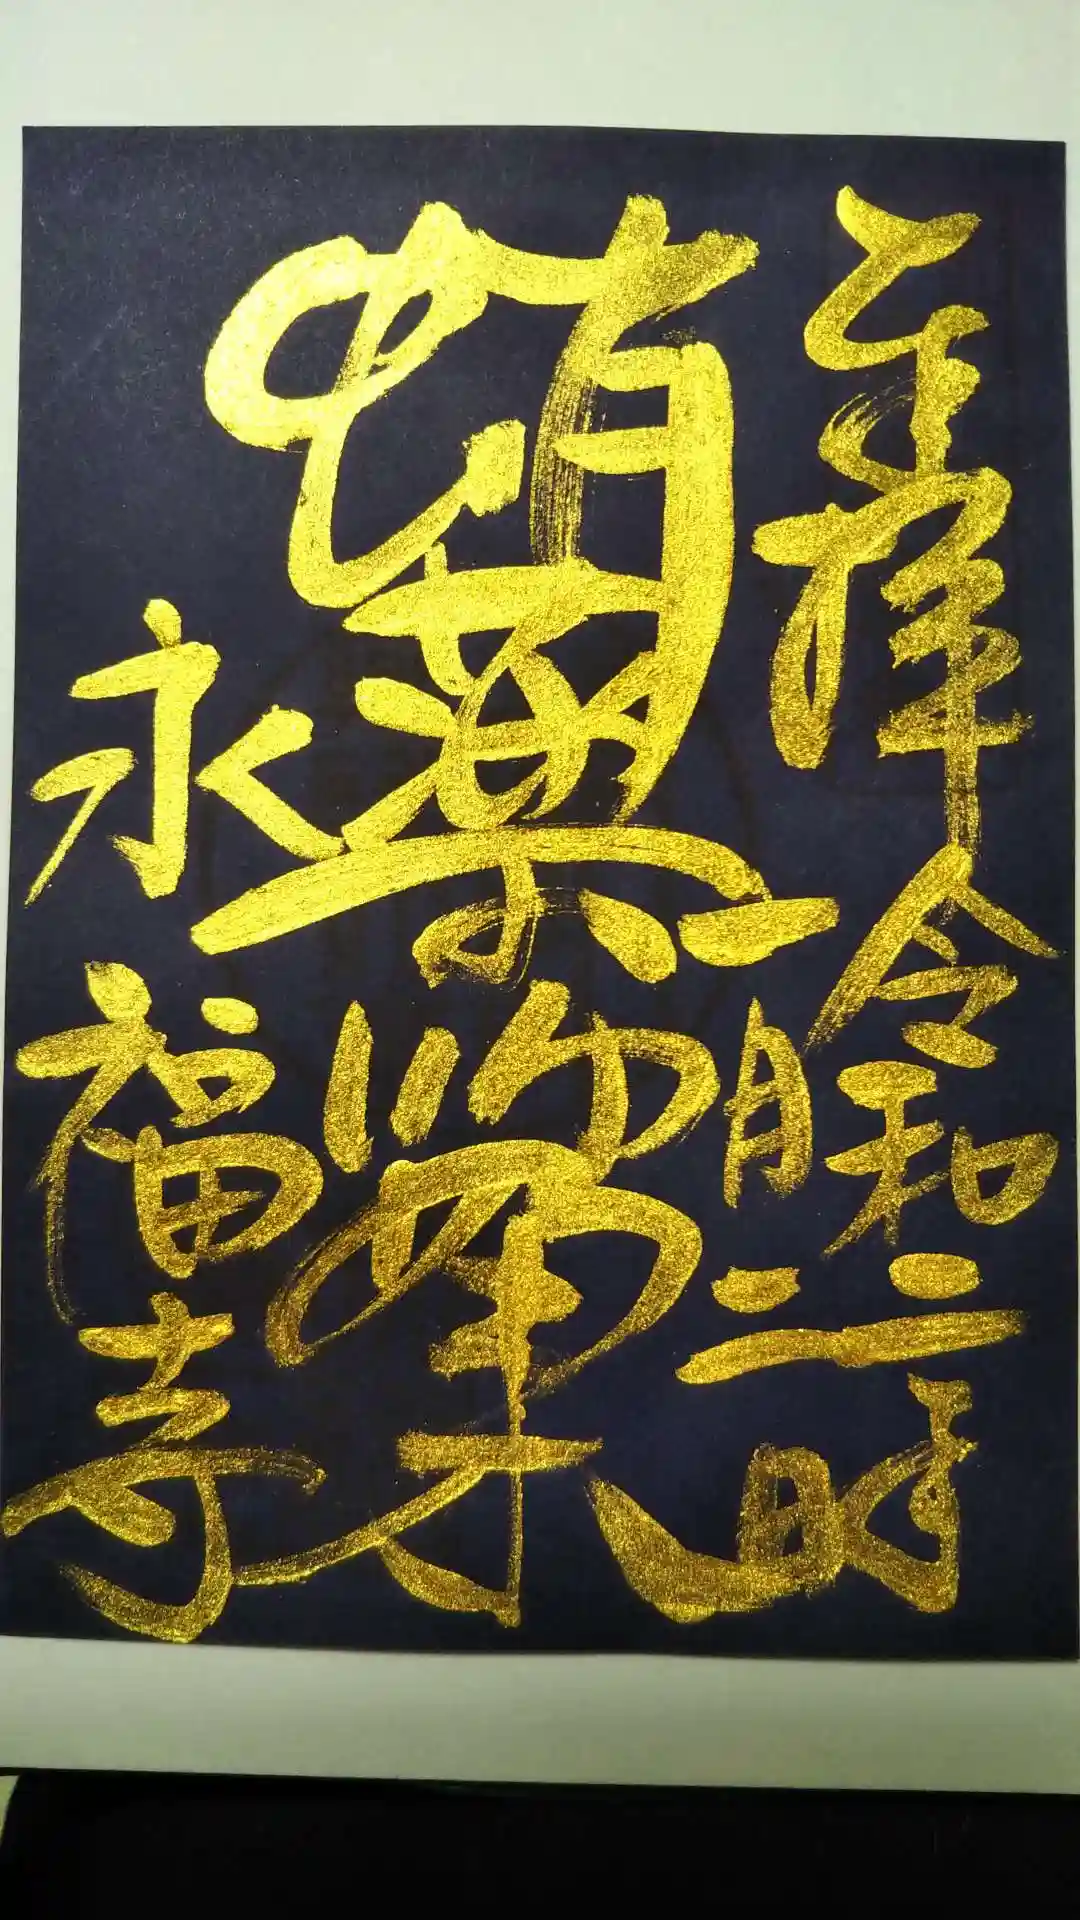 奉拝 令和二年
一月二日
蛸薬師如来
永福寺